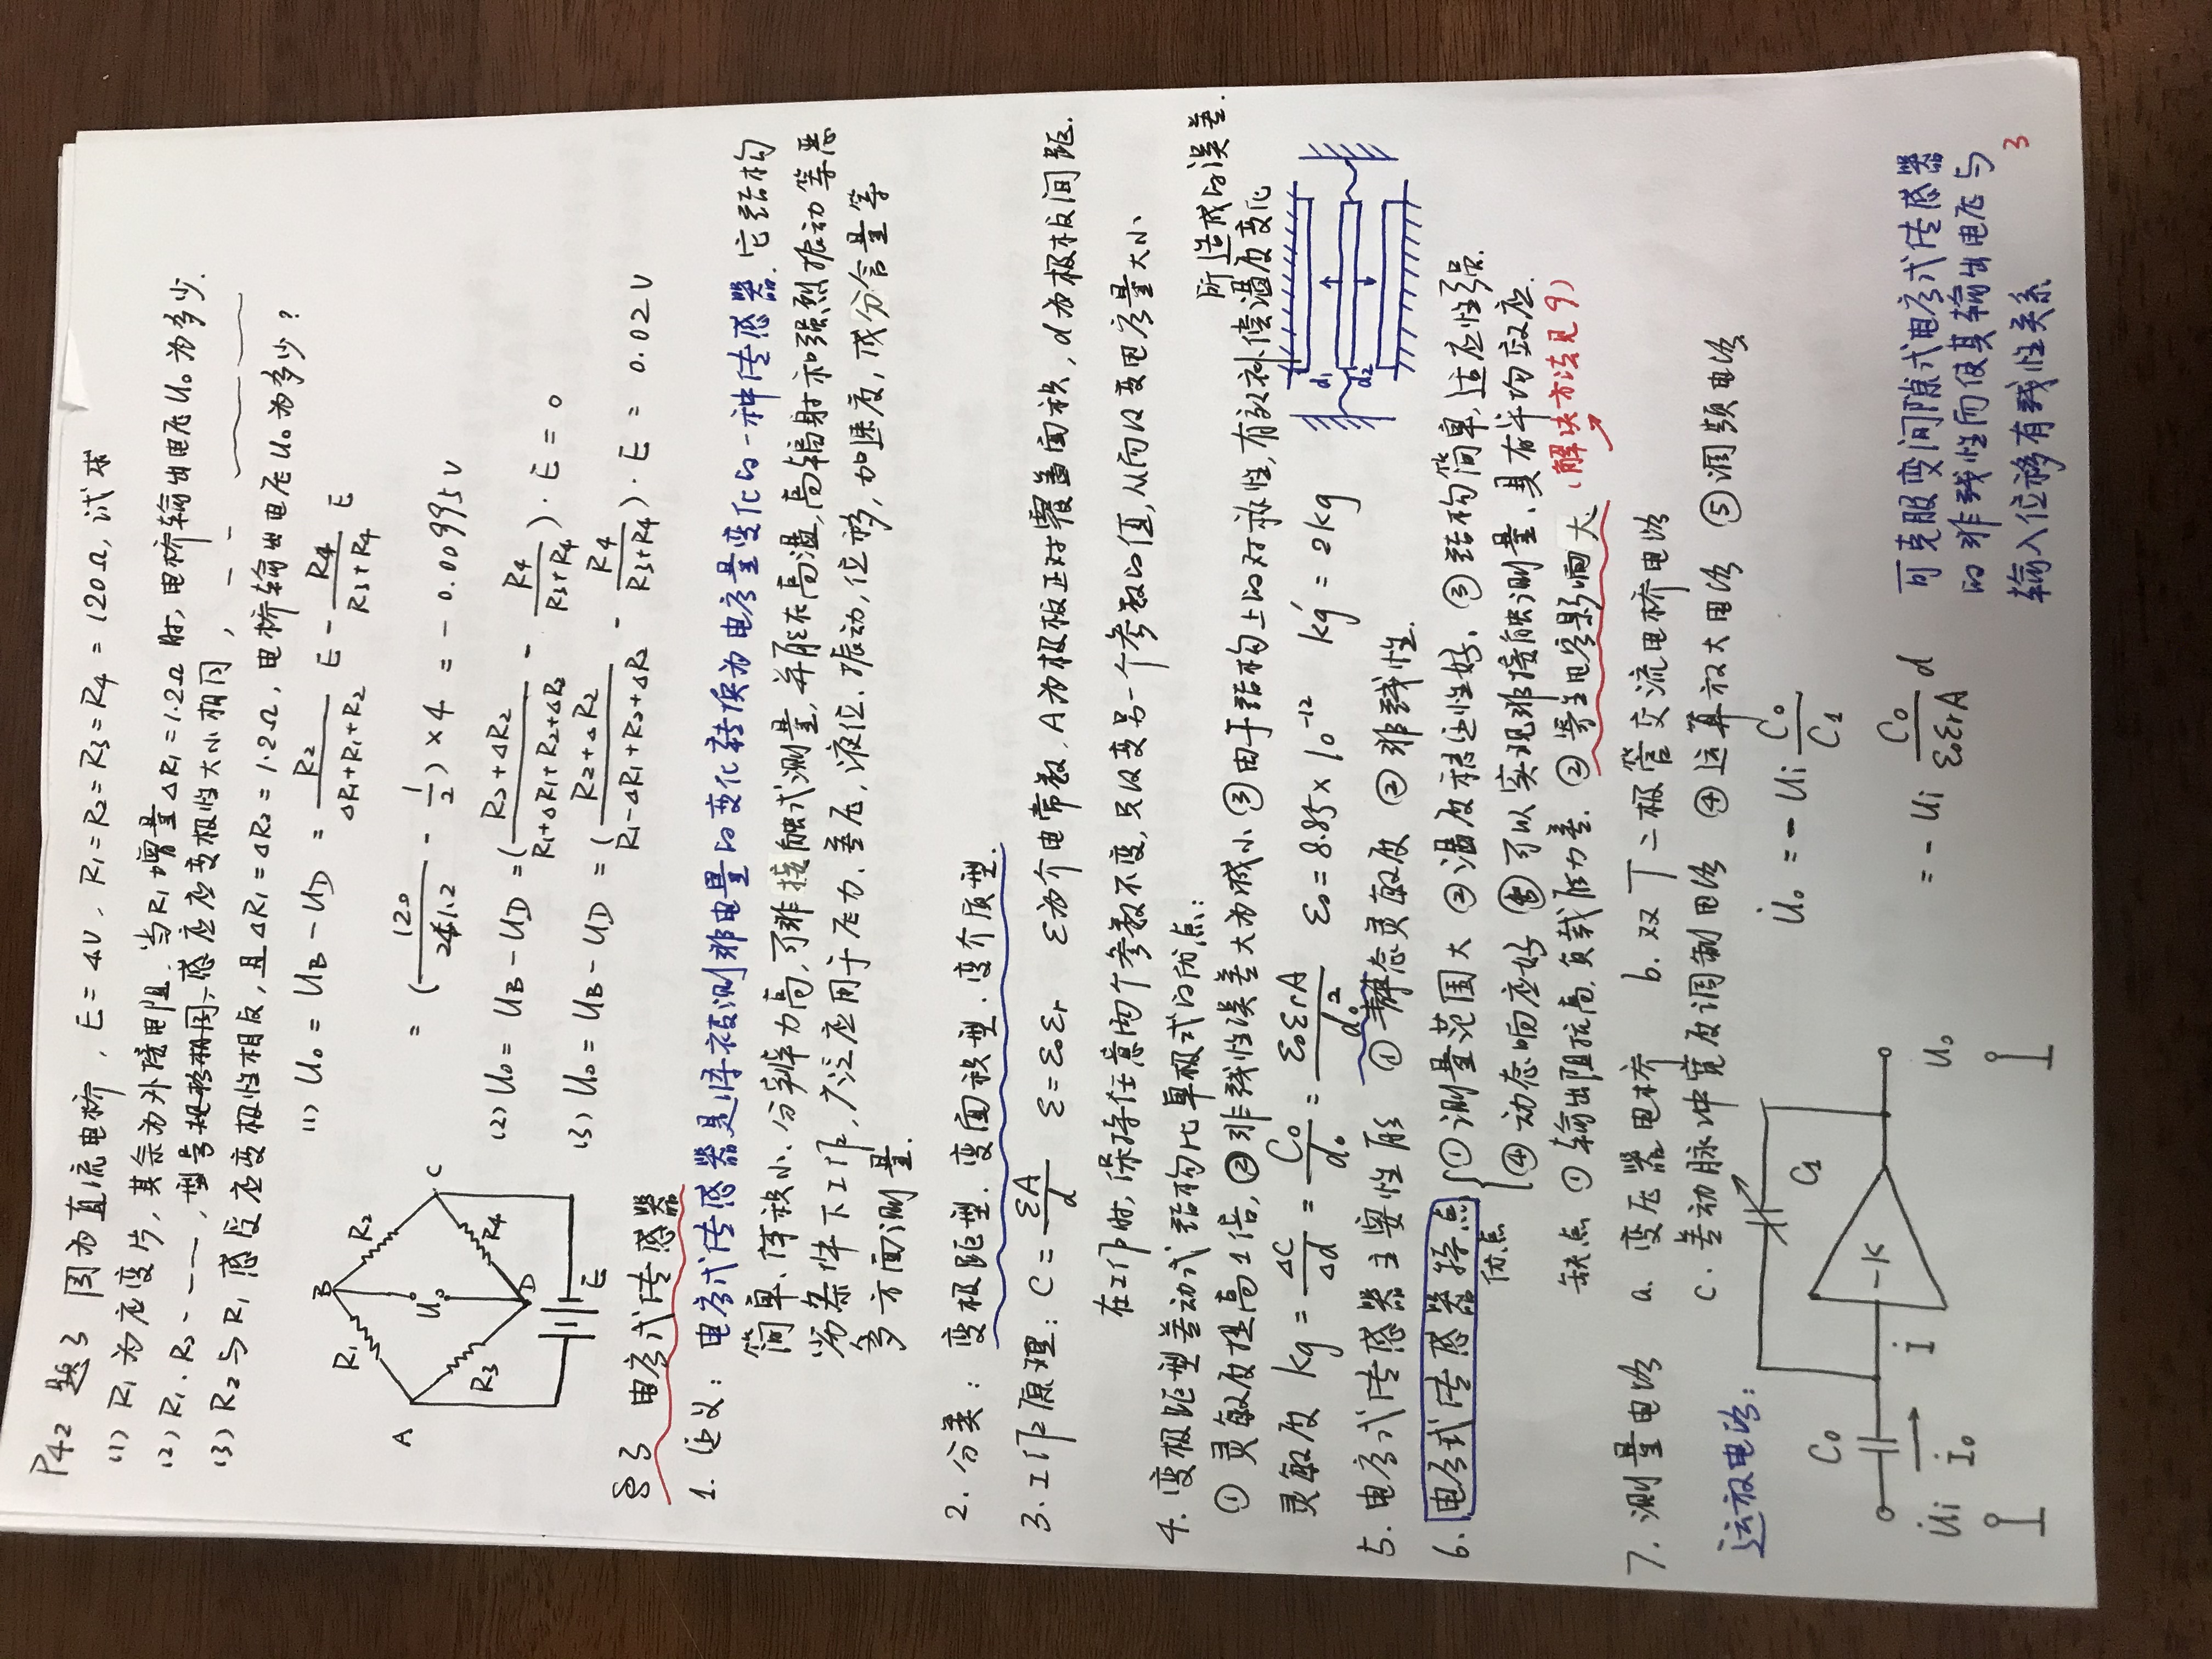 P42 题3 图为直流电桥，E=4V，R₁=R₂=R₃=R₄=120Ω，试求
(1) R₁为应变片，其余为外接电阻，当R₁增量ΔR₁=1.2Ω时，电桥输出电压U₀为多少.
(2) R₁、R₂----，型号规格相同，感应应变极性大小相同，-- 
(3) R₂与R₁感受应变极性相反，且ΔR₁=ΔR₂=1.2Ω，电桥输出电压U₀为多少？
(1) U₀ = U_B - U_D = R₂/(ΔR₁+R₁+R₂) E - R₄/(R₃+R₄) E
= (120/241.2 - 1/2)×4 = -0.00995V
(2) U₀ = U_B - U_D = ((R₂+ΔR₂)/(R₁+ΔR₁+R₂+ΔR₂) - R₄/(R₃+R₄))·E = 0
(3) U₀ = U_B - U_D = ((R₂+ΔR₂)/(R₁-ΔR₁+R₂+ΔR₂) - R₄/(R₃+R₄))·E = 0.02V
B
R₁
R₂
A
U₀
C
R₃
R₄
D
E
§3 电容式传感器
1. 定义：电容式传感器是将被测非电量的变化转换为电容量变化的一种传感器. 它结构
简单、体积小、分辨力高，可非接触式测量，并能在高温，高辐射和强烈振动等恶
劣条件下工作，广泛应用于压力、差压，液位、振动，位移，加速度，成分含量等
多方面测量.
2. 分类：变极距型、变面积型、变介质型.
3. 工作原理：C=εA/d ε=ε₀εr ε为介电常数，A为极板正对覆盖面积，d为极板间距.
在工作时，保持任意两个参数不变，只改变另一个参数的值，从而改变电容量大小
4. 变极距型差动式结构比单极式的优点：
① 灵敏度提高1倍，② 非线性误差大为减小 ③ 由于结构上的对称性，有效补偿温度变化
所造成的误差.
灵敏度 kg = ΔC/Δd = C₀/d₀ = ε₀εrA/d₀² ε₀=8.85×10⁻¹² kg′=2kg
d₁
d₂
5. 电容式传感器主要性能 ① 静态灵敏度 ② 非线性.
6. 电容式传感器特点 ① 测量范围大 ② 温度稳定性好. ③ 结构简单，适应性强.
优点 ④ 动态响应好 ⑤ 可以实现非接触测量、具有平均效应.
缺点 ① 输出阻抗高，负载能力差. ② 寄生电容影响大.（解决方法见9）
7. 测量电路 a. 变压器电桥 b. 双T二极管交流电桥电路
c. 差动脉冲宽度调制电路 ④ 运算放大电路 ⑤ 调频电路
运放电路：
C₁
C₀
-K
U̇i
İ₀
İ
U₀
U̇₀ = -Ui C₀/C₁
= -Ui C₀/(ε₀εrA) d
可克服变间隙式电容式传感器
的非线性而使其输出电压与
输入位移有线性关系
3